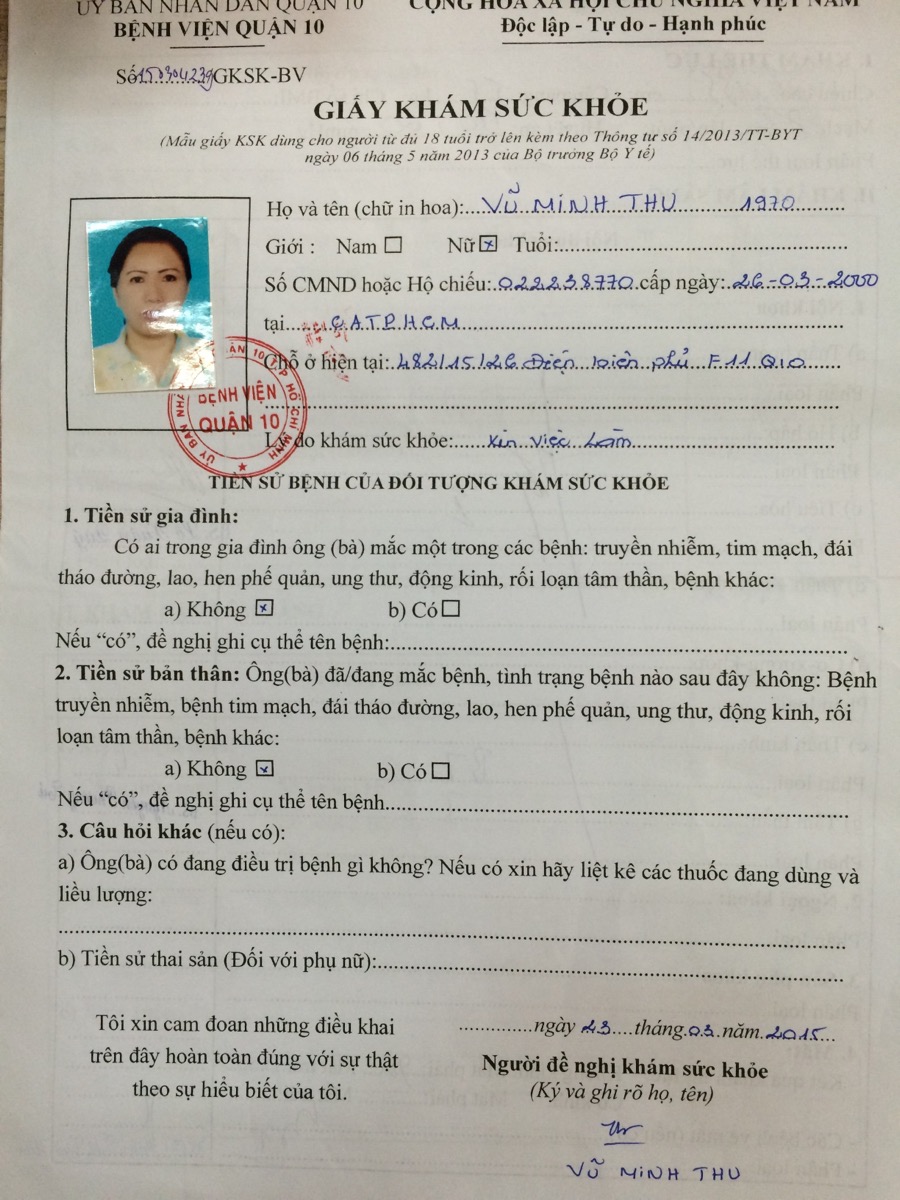 ỦY BAN NHÂN DÂN QUẬN 10
BỆNH VIỆN QUẬN 10
CỘNG HÒA XÃ HỘI CHỦ NGHĨA VIỆT NAM
Độc lập - Tự do - Hạnh phúc
Số150304239GKSK-BV
GIẤY KHÁM SỨC KHỎE
(Mẫu giấy KSK dùng cho người từ đủ 18 tuổi trở lên kèm theo Thông tư số 14/2013/TT-BYT
ngày 06 tháng 5 năm 2013 của Bộ trưởng Bộ Y tế)
Họ và tên (chữ in hoa):....VŨ MINH THU 1970
Giới : Nam ☐ Nữ ☒ Tuổi:
Số CMND hoặc Hộ chiếu: 022238770 cấp ngày: 26-03-2000
tại CATPHCM
Chỗ ở hiện tại: 482/15/26 Điện biên phủ F11 Q10
BỆNH VIỆN
QUẬN 10
Lý do khám sức khỏe: Xin việc làm
TIỀN SỬ BỆNH CỦA ĐỐI TƯỢNG KHÁM SỨC KHỎE
1. Tiền sử gia đình:
Có ai trong gia đình ông (bà) mắc một trong các bệnh: truyền nhiễm, tim mạch, đái
tháo đường, lao, hen phế quản, ung thư, động kinh, rối loạn tâm thần, bệnh khác:
a) Không ☒ b) Có ☐
Nếu “có”, đề nghị ghi cụ thể tên bệnh:
2. Tiền sử bản thân: Ông(bà) đã/đang mắc bệnh, tình trạng bệnh nào sau đây không: Bệnh
truyền nhiễm, bệnh tim mạch, đái tháo đường, lao, hen phế quản, ung thư, động kinh, rối
loạn tâm thần, bệnh khác:
a) Không ☒ b) Có ☐
Nếu “có”, đề nghị ghi cụ thể tên bệnh
3. Câu hỏi khác (nếu có):
a) Ông(bà) có đang điều trị bệnh gì không? Nếu có xin hãy liệt kê các thuốc đang dùng và
liều lượng:
b) Tiền sử thai sản (Đối với phụ nữ):
Tôi xin cam đoan những điều khai
trên đây hoàn toàn đúng với sự thật
theo sự hiểu biết của tôi.
ngày 23 tháng 03 năm 2015
Người đề nghị khám sức khỏe
(Ký và ghi rõ họ, tên)
VŨ MINH THU